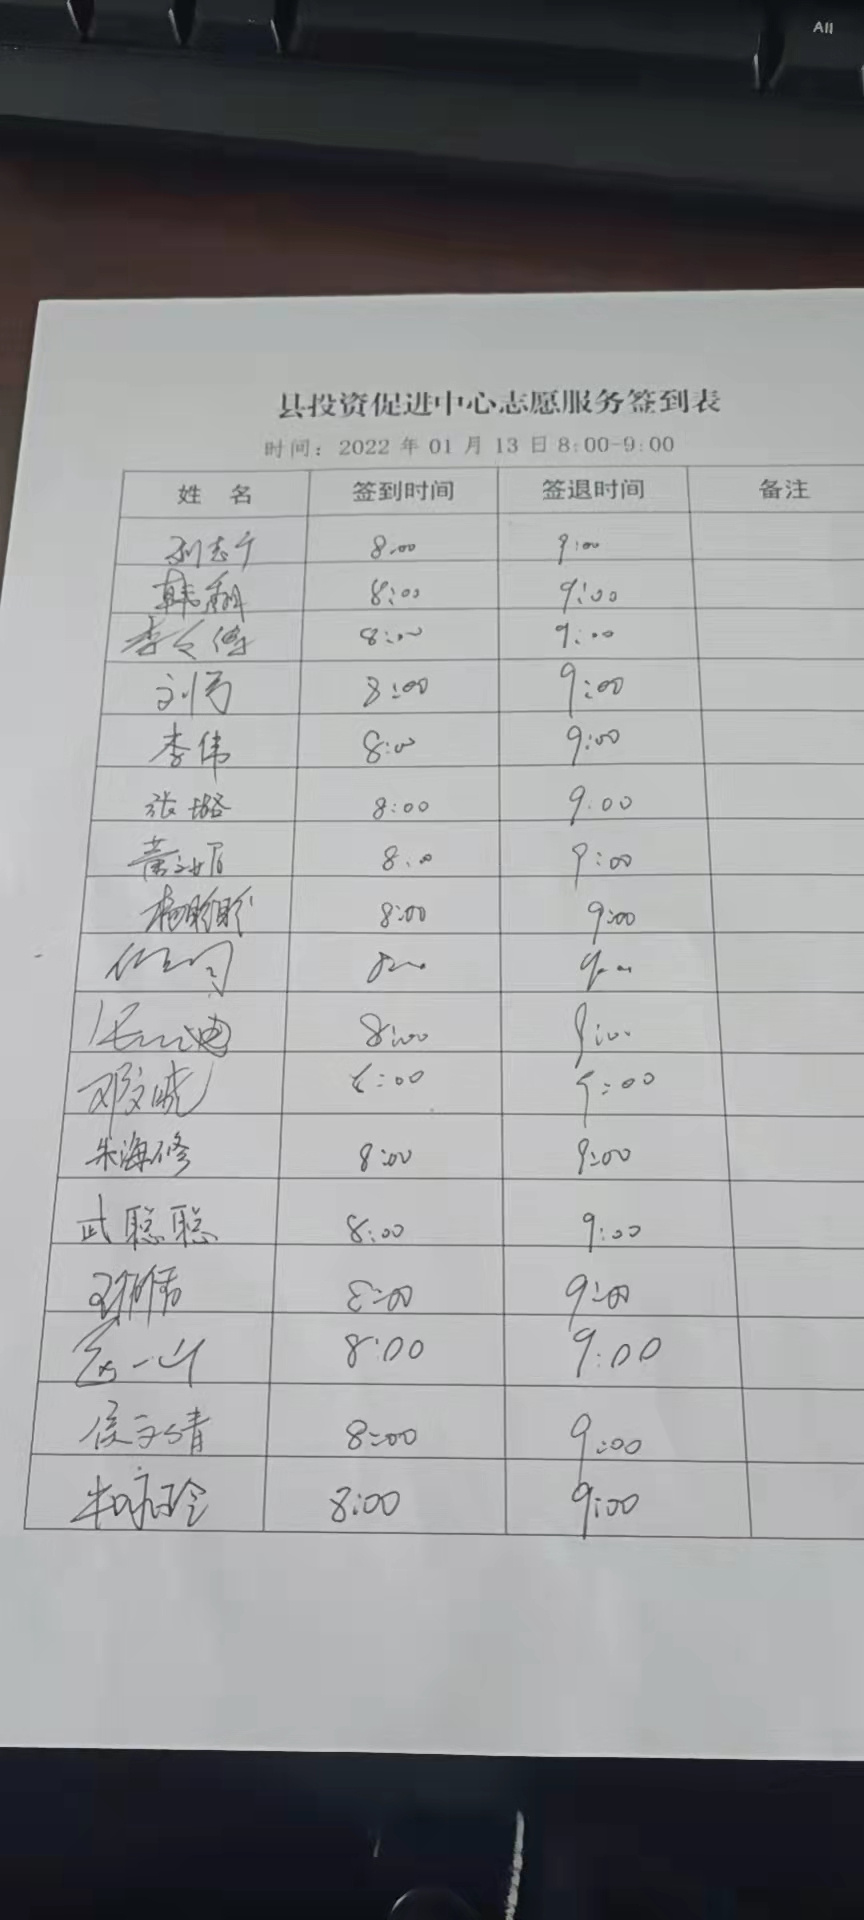 All
县投资促进中心志愿服务签到表
时间：2022 年 01 月 13 日 8:00-9:00
姓 名 签到时间 签退时间 备注
刘志千 8:00 9:00
韩 8:00 9:00
李 8:00 9:00
刘 8:00 9:00
李伟 8:00 9:00
张璐 8:00 9:00
黄 8:00 9:00
杨盼盼 8:00 9:00
8:00 9:00
8:00 9:00
邓文晓 8:00 9:00
朱海修 8:00 9:00
武聪聪 8:00 9:00
8:00 9:00
8:00 9:00
侯 8:00 9:00
8:00 9:00